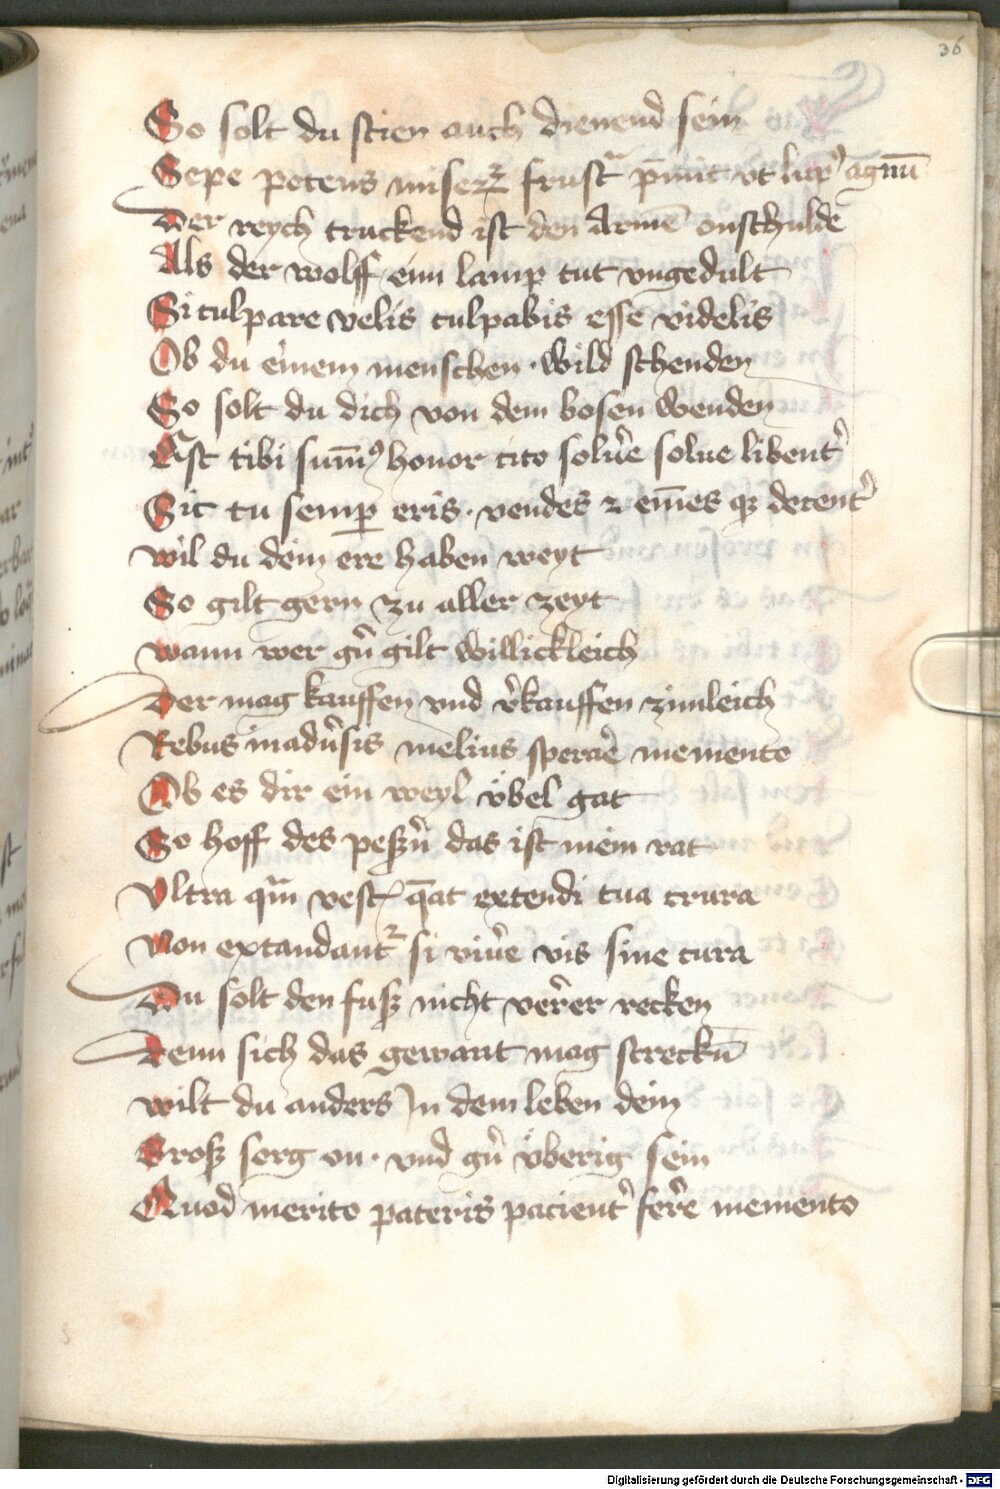 36
So solt du stien auch dienend sein
Sepe potens miseꝝ frustᷓ p̄mit vt lupꝰ agnū
Der reych truckend ist den Armē onschulde
Als der wolff eim lamp tut vngedult
Si culpare velis culpabis esse videlis
Ob du einem menschen · wild schenden
So solt du dich von dem bosen wenden
Est tibi sum̄ꝰ honor cito solu̓e solue libent̓
Sic tu semꝑ eris · vendes ⁊ em̄es qꝫ decent̓
wil du dein ere haben weyt
So gilt gern zu aller zeyt
wann wer gn̓ gilt willickleich
Der mag kauffen vnd v̓kauffen zimleich
Rebus in adu̓sis melius sperae̓ memento
Ob es dir ein weyl vͤbel gat
So hoff des peszn̓ das ist mein rat
Vltra qᷓm vest̄ q̄at extendi tua crura
Non extandantᷣ si viu̓e vis sine cura
Du solt den fusz nicht ver̓er recken
Denn sich das gewant mag streckn̄
wilt du anders In dem leben dein
Grosz sorg on · vnd gn̓ vͤberig sein
Quod merito pateris pacient̓ fer̓e memento
Digitalisierung gefördert durch die Deutsche Forschungsgemeinschaft - DFG